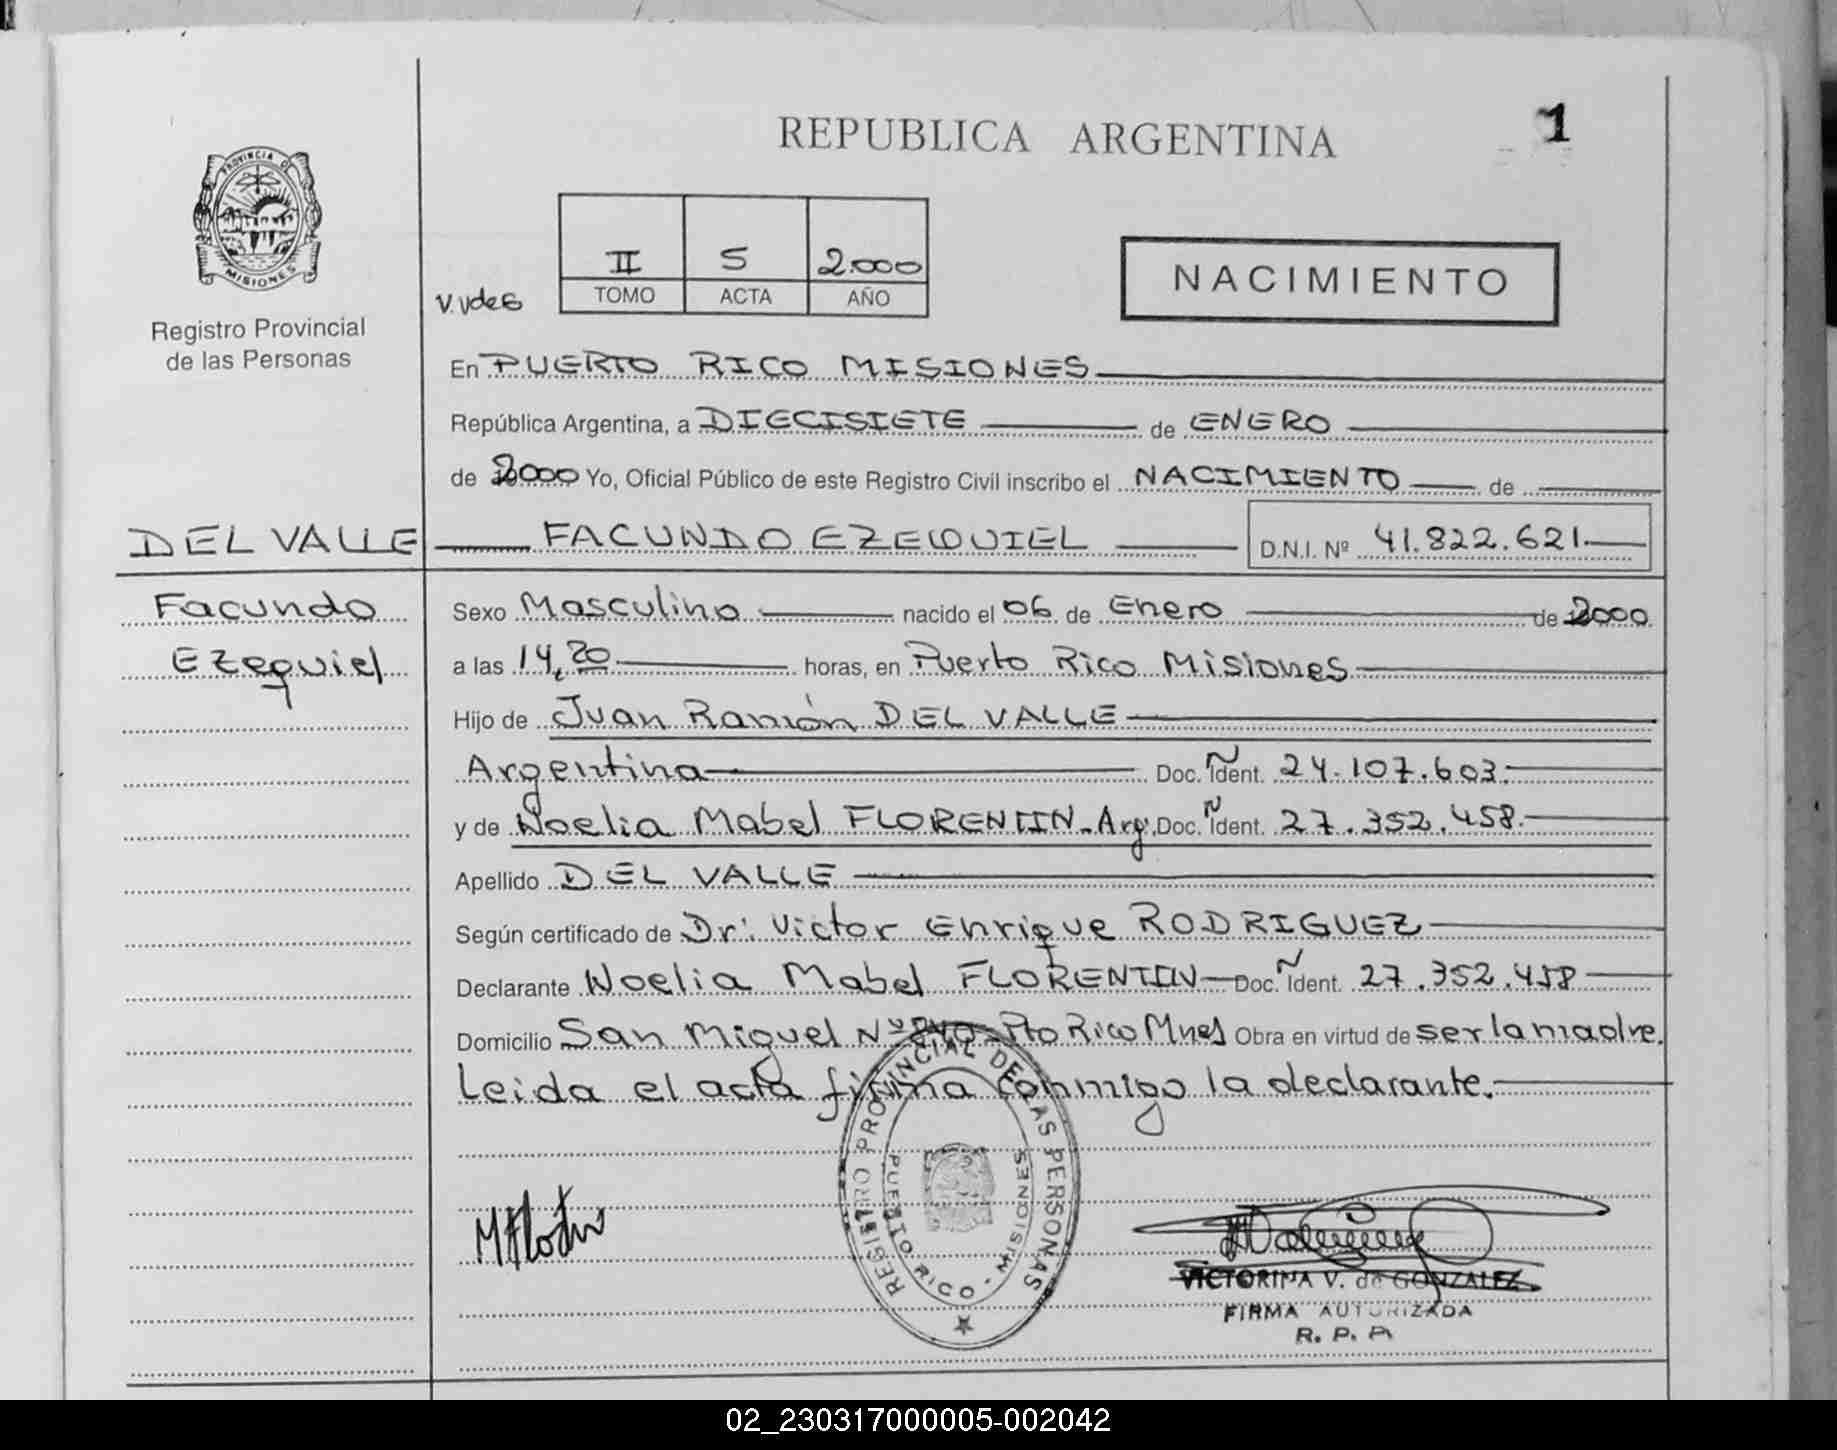 REPUBLICA ARGENTINA
1
PROVINCIA DE
MISIONES
Registro Provincial
de las Personas
V.VdeG
II 5 2.000
TOMO ACTA AÑO
NACIMIENTO
En PUERTO RICO MISIONES
República Argentina, a DIECISIETE de ENERO
de 2000 Yo, Oficial Público de este Registro Civil inscribo el NACIMIENTO de
DEL VALLE FACUNDO EZEQUIEL D.N.I. Nº 41.822.621
Facundo Sexo Masculino nacido el 06 de Enero de 2000
Ezequiel a las 14,20 horas, en Puerto Rico Misiones
Hijo de Juan Ramón DEL VALLE
Argentina Doc. Ident. 24.107.603.
y de Noelia Mabel FLORENTIN-Arg. Doc. Ident. 27.352.458.
Apellido DEL VALLE
Según certificado de Dr: Victor Enrique RODRIGUEZ
Declarante Noelia Mabel FLORENTIN Doc. Ident. 27.352.458
Domicilio San Miguel Pto Rico Mnes Obra en virtud de ser la madre.
Leida el acta firma conmigo la declarante.
REGISTRO PROVINCIAL DE LAS PERSONAS
PUERTO RICO - MISIONES
VICTORINA V. de GONZALEZ
FIRMA AUTORIZADA
R. P. P.
02_230317000005-002042